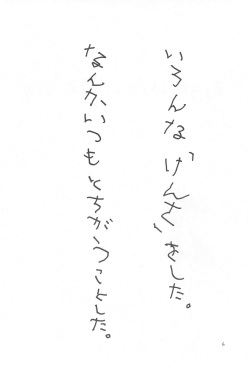 いろんな「けんさ」をした。
なんか、いつもとちがうことした。